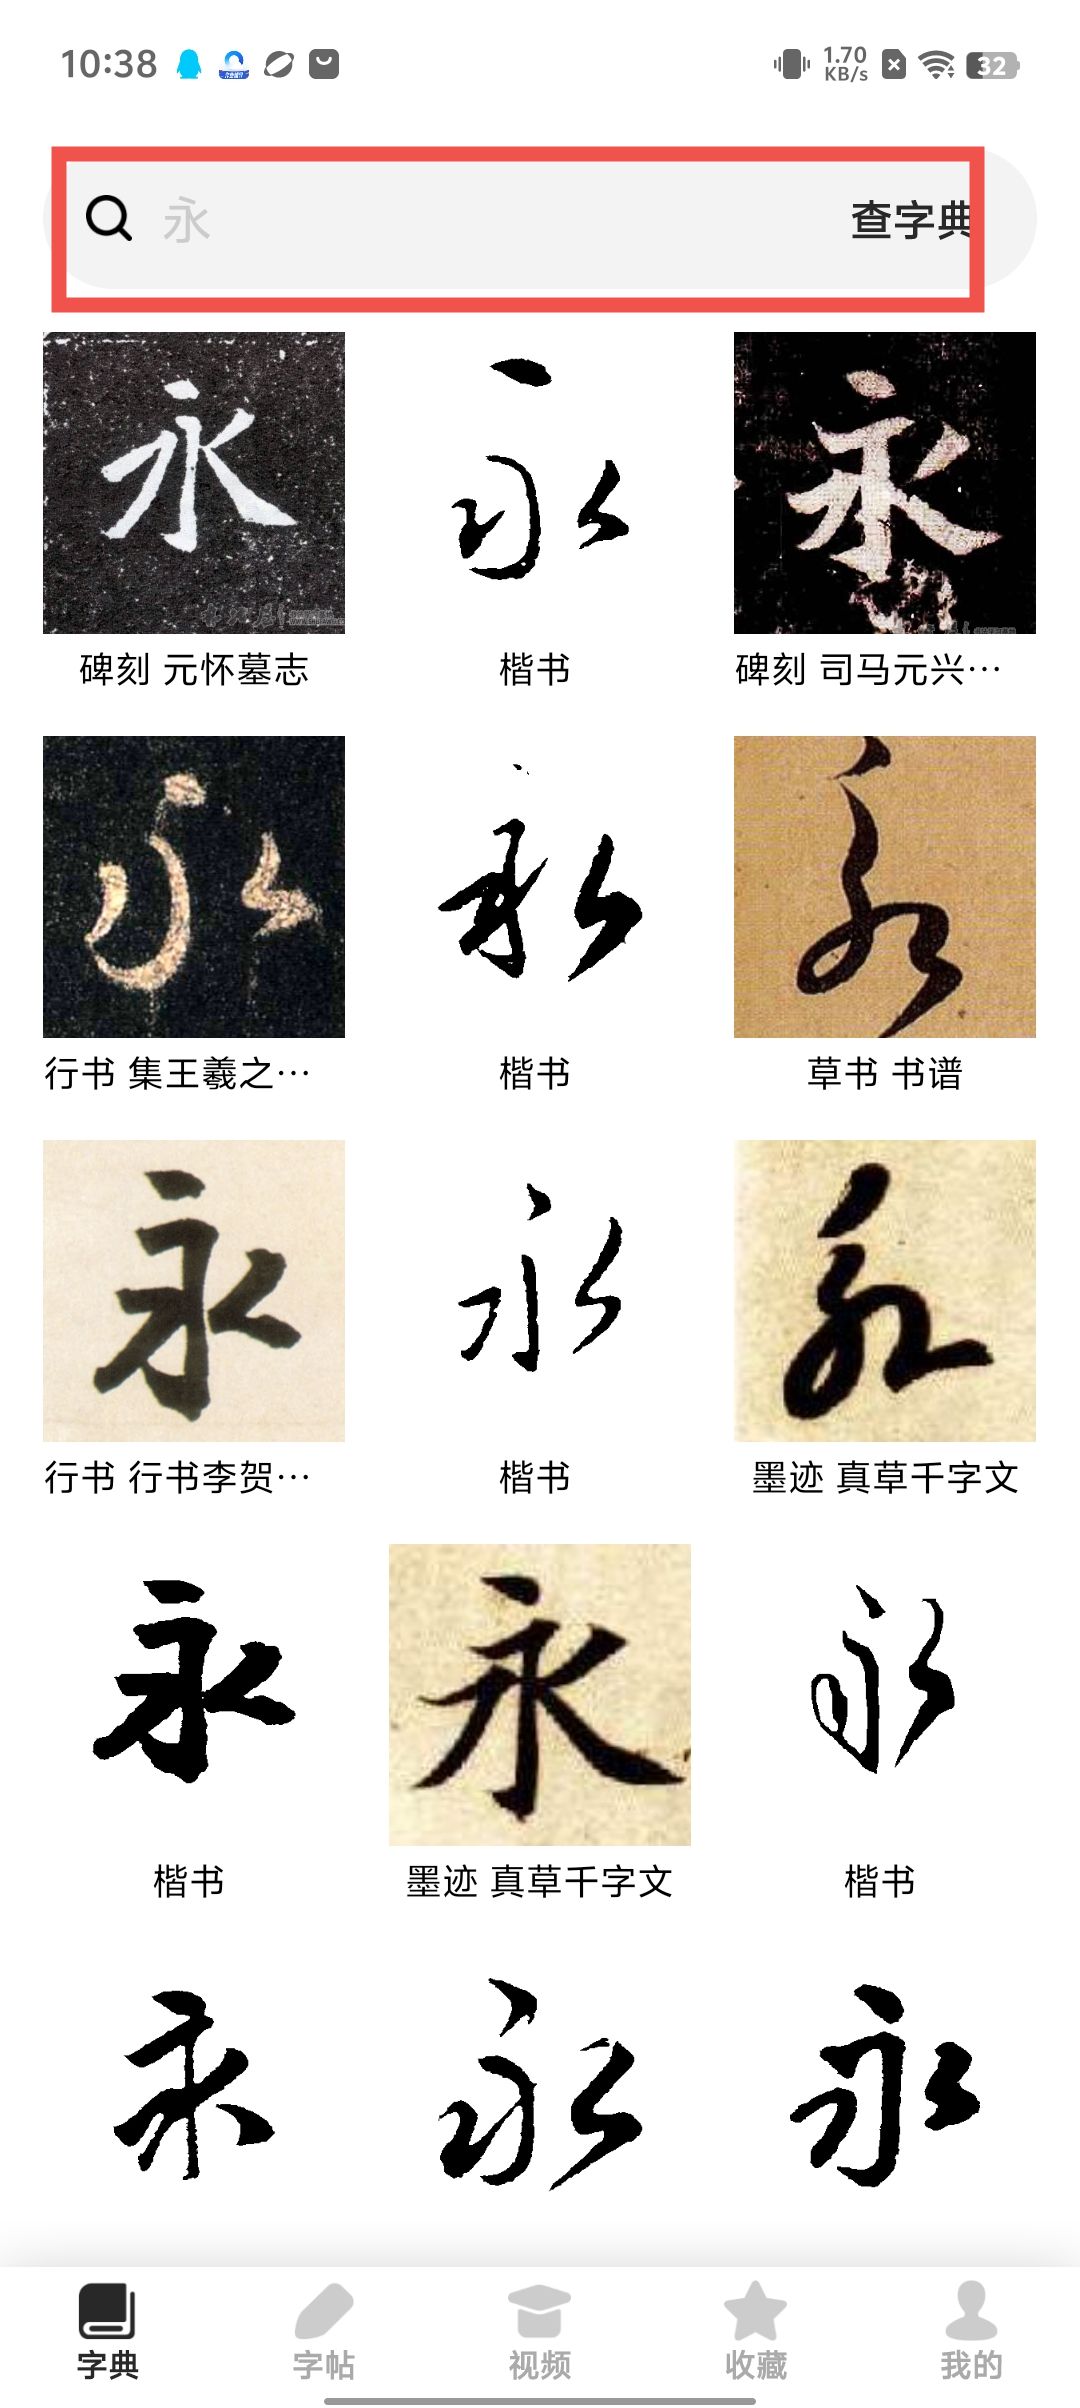 10:38 1.70 KB/s 32
永 查字典
永 永 永
碑刻 元怀墓志 楷书 碑刻 司马元兴…
永 永 永
行书 集王羲之… 楷书 草书 书谱
永 永 永
行书 行书李贺… 楷书 墨迹 真草千字文
永 永 永
楷书 墨迹 真草千字文 楷书
永 永 永
字典 字帖 视频 收藏 我的